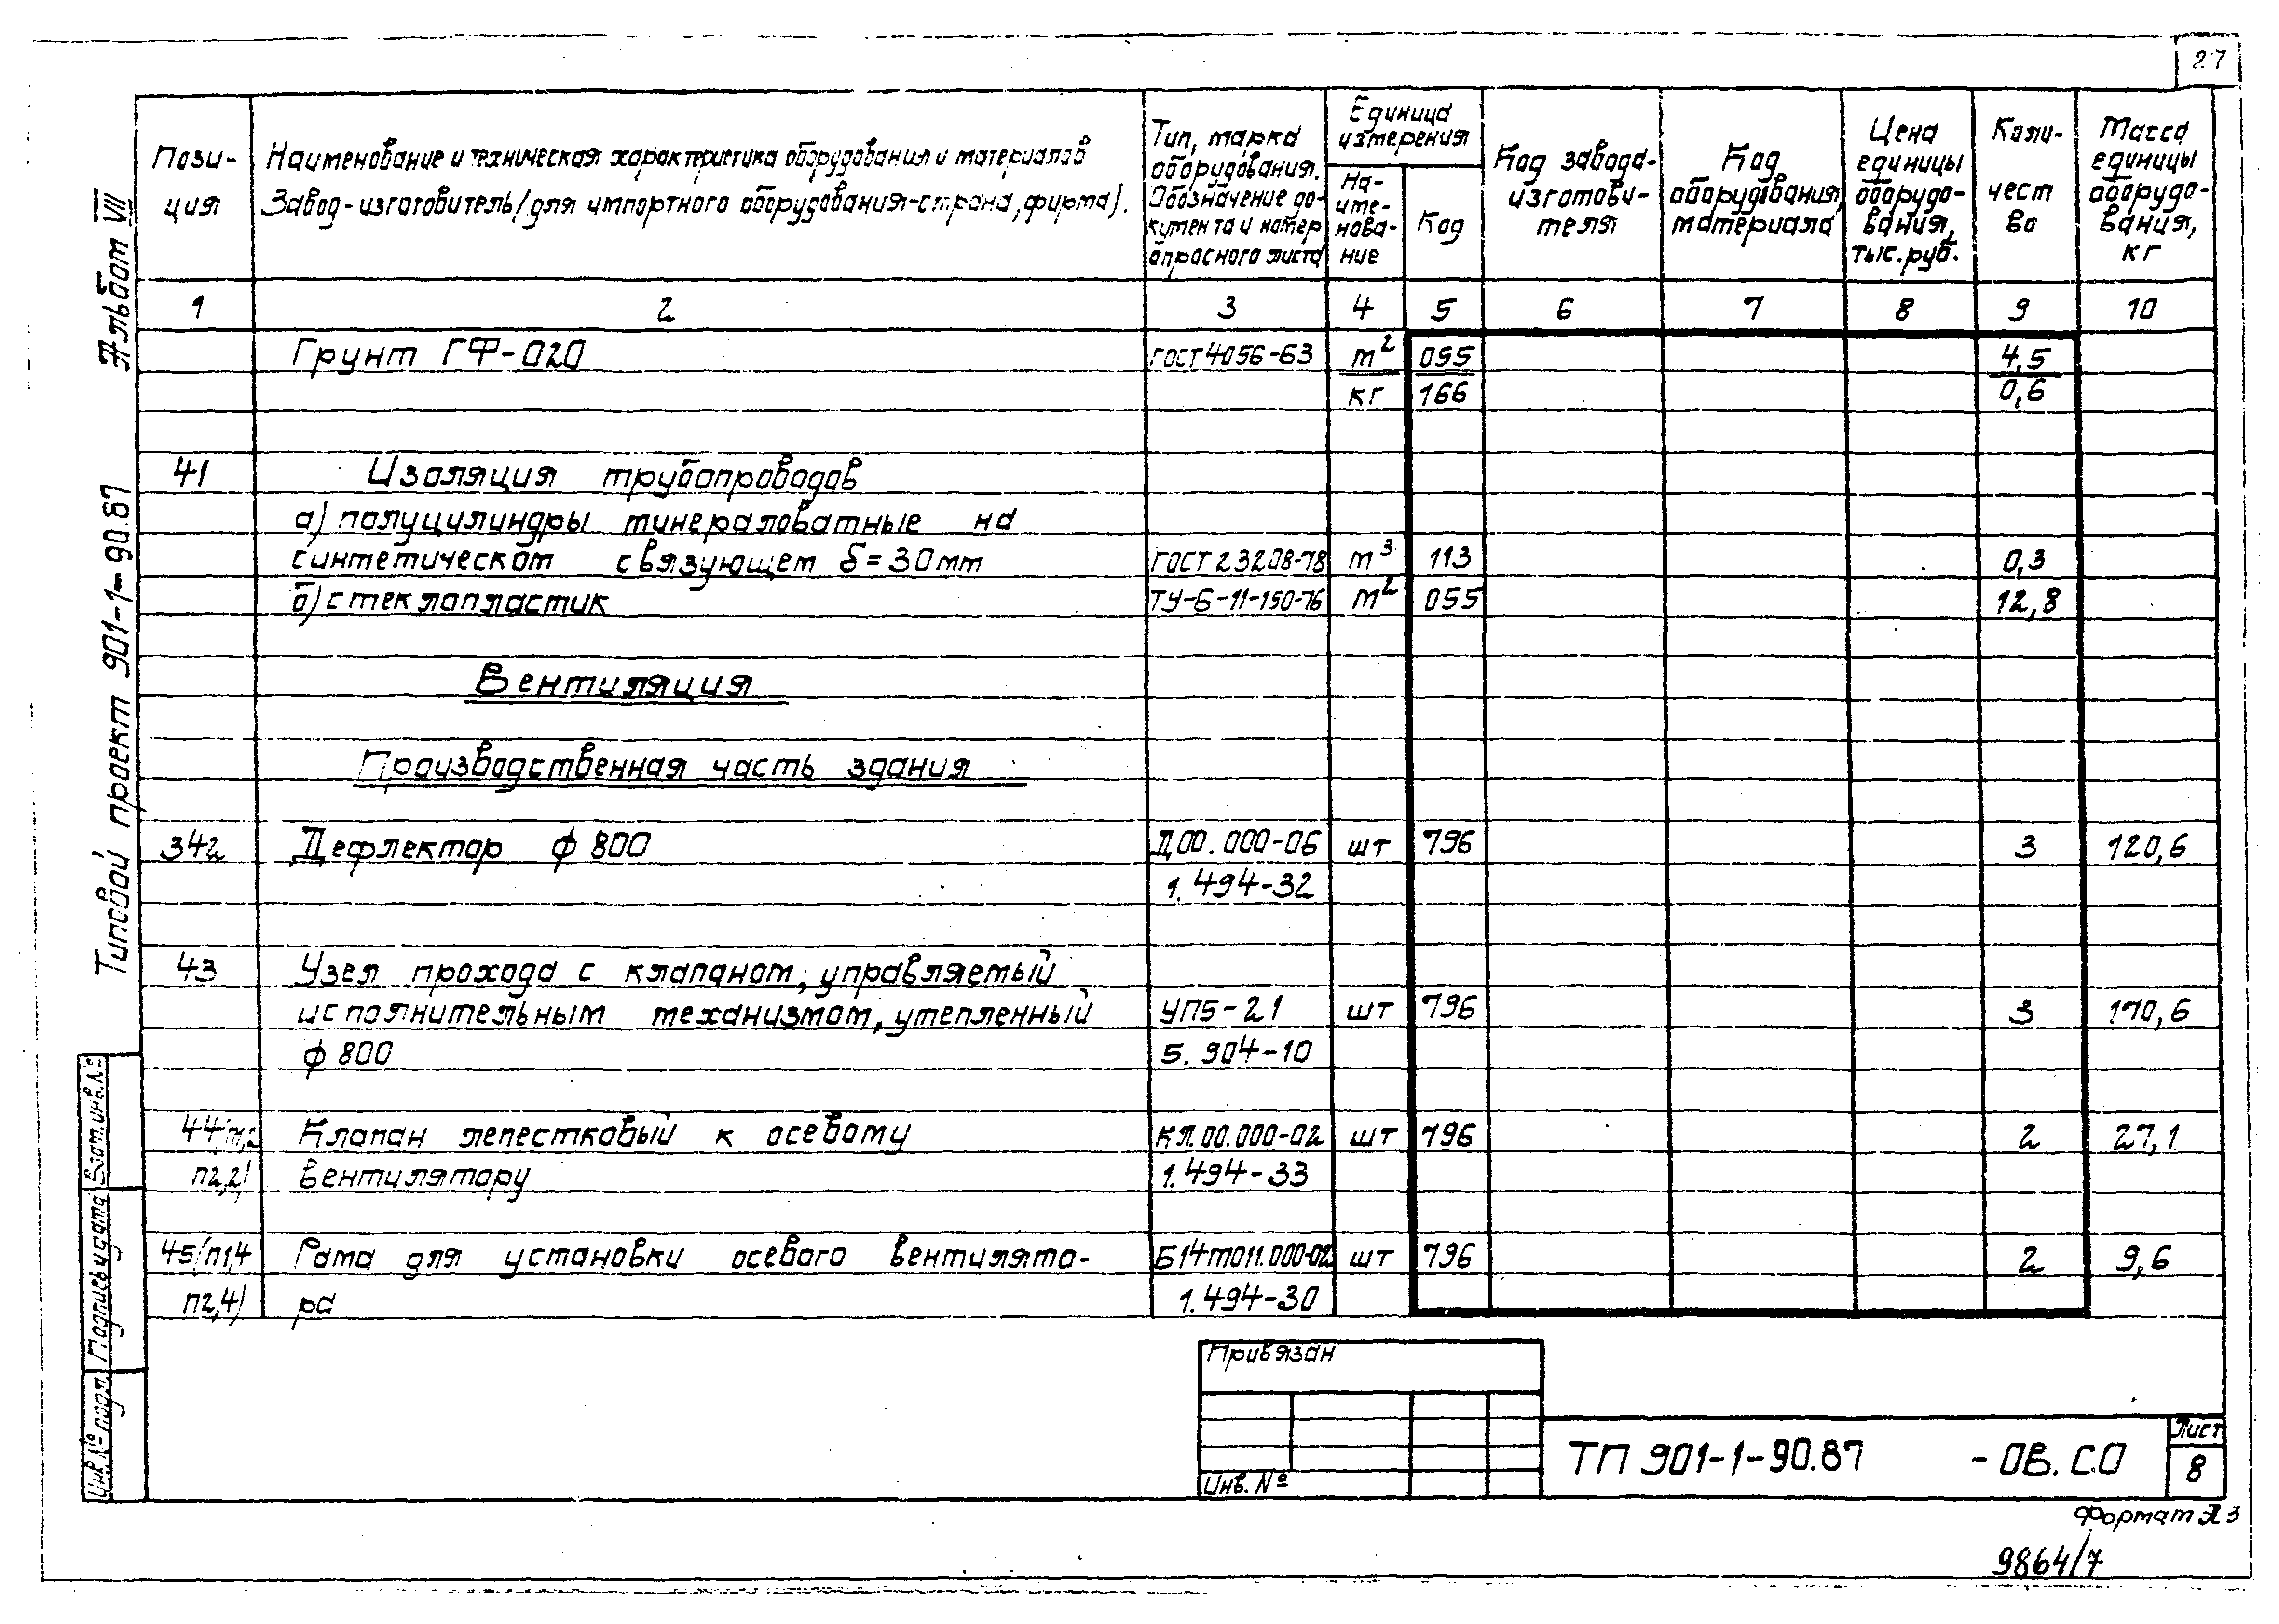 27
Пози-
ция
Наименование и техническая характеристика оборудования и материалов
Завод-изготовитель/для импортного оборудования-страна, фирма).
Тип, марка
оборудования.
Обозначение до-
кумента и номер
опросного листа
Единица
измерения
На-
име-
нова-
ние
Код
Код завода-
изготови-
теля
Код
оборудования,
материала
Цена
единицы
оборудо-
вания,
тыс. руб.
Коли-
чест
во
Масса
единицы
оборудо-
вания,
кг
1 2 3 4 5 6 7 8 9 10
Грунт ГФ-020 ГОСТ 4056-63 м² 055 4,5
кг 166 0,6
41 Изоляция трубопроводов
а) полуцилиндры минераловатные на
синтетическом связующем δ=30мм ГОСТ 23208-78 м³ 113 0,3
б) стеклопластик ТУ-6-11-150-76 м² 055 12,8
Вентиляция
Производственная часть здания
342 Дефлектор ф 800 Д.00.000-06 шт 796 3 120,6
1.494-32
43 Узел прохода с клапаном, управляемый
исполнительным механизмом, утепленный УП5-21 шт 796 3 170,6
ф 800 5.904-10
44 Клапан лепестковый к осевому КЛ.00.000-02 шт 796 2 27,1
П2,2) вентилятору 1.494-33
45/П1,4 Рама для установки осевого вентилято- Б14т011.000-02 шт 796 2 9,6
П2,4) ра 1.494-30
Привязан
Инв. №
ТП 901-1-90.87 -ОВ.СО
Лист
8
Формат А3
9864/7
Типовой проект 901-1-90.87 Альбом VII
Взам.инв.№
Подпись и дата
Инв № подл.